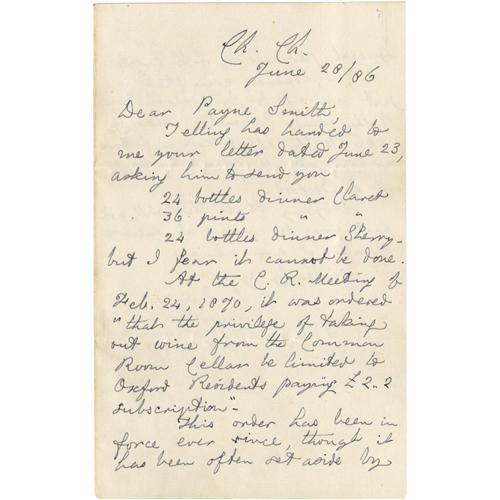 Ch. Ch.
June 28/86
Dear Payne Smith,
Telling has handed to
me your letter dated June 23,
asking him to send you
24 bottles dinner Claret
36 pints " "
24 bottles dinner Sherry -
but I fear it cannot be done.
At the C. R. Meeting of
Feb. 24, 1870, it was ordered
"that the privilege of taking
out wine from the Common
Room Cellar be limited to
Oxford Residents paying £2..2
subscription".
This order has been in
force ever since, though it
has been often set aside by